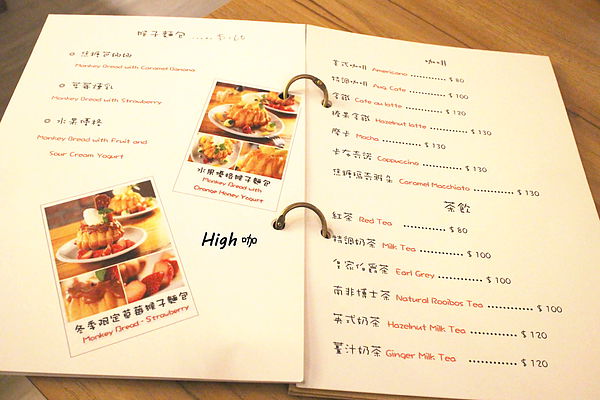 猴子麵包 .....
Monkey Bread with Caramel Banana
Monkey Bread with Strawberry
水果優格
Monkey Bread with Fruit and
Sour Cream Yogurt
水果優格猴子麵包
Monkey Bread with
Orange Honey Yogurt
冬季限定草莓猴子麵包
Monkey Bread - Strawberry
High 咖
咖啡
美式咖啡 Americano ............ $ 80
特調咖啡 Aug Cafe ............ $ 100
拿鐵 Cafe au latte ............ $ 120
榛果拿鐵 Hazelnut latte ............ $ 130
摩卡 Mocha ............ $ 130
卡布奇諾 Cappuccino ............ $ 130
焦糖瑪奇朵 Caramel Macchiato ............ $ 130
茶飲
紅茶 Red Tea ............ $ 80
特調奶茶 Milk Tea ............ $ 100
皇家伯爵茶 Earl Grey ............ $ 100
南非博士茶 Natural Rooibos Tea ............ $ 100
英式奶茶 Hazelnut Milk Tea ............ $ 120
薑汁奶茶 Ginger Milk Tea ............ $ 120